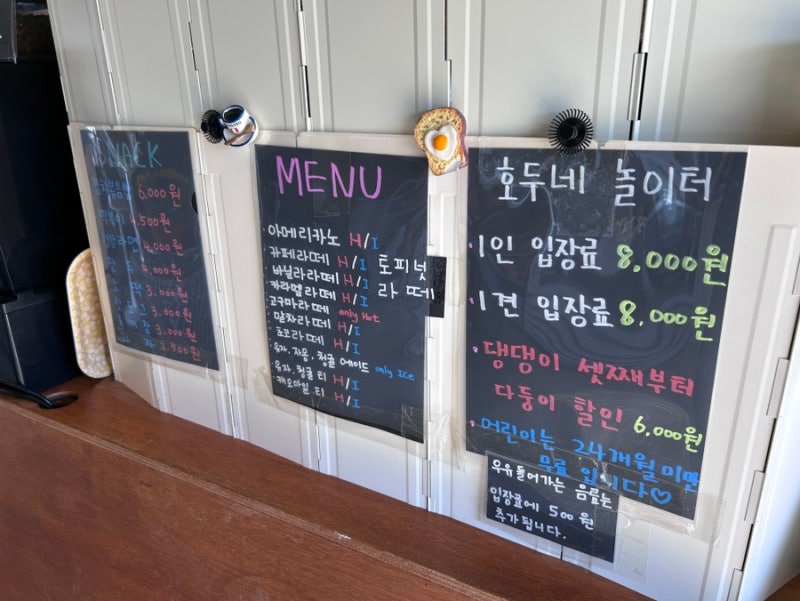 SNACK
6,000원
4,500원
4,000원
4,000원
3,000원
3,000원
MENU
· 아메리카노 H/I
· 카페라떼 H/I
· 바닐라라떼 H/I
· 카라멜라떼 H/I
토피넛
라떼
· 고구마라떼 only Hot
· 말차라떼 H/I
· 초코라떼 H/I
· 유자, 자몽, 청귤 에이드 only Ice
· 유자, 청귤 티 H/I
· 캐모마일 티 H/I
호두네 놀이터
· 1인 입장료 8,000원
· 1견 입장료 8,000원
· 댕댕이 셋째부터
다둥이 할인 6,000원
· 어린이는 24개월미만
무료 입니다♡
우유들어가는 음료는
입장료에 500원
추가됩니다.